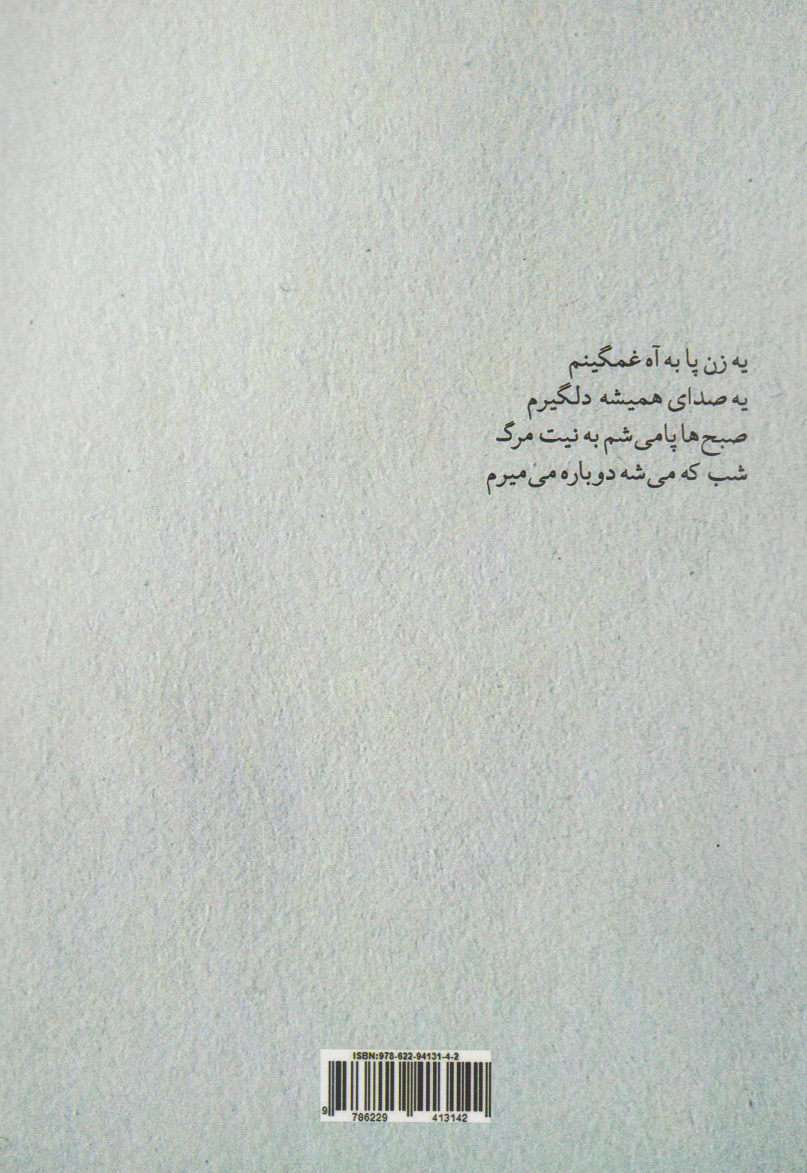 یه زن پا به آه غمگینم
یه صدای همیشه دلگیرم
صبح‌ها پامی‌شم به نیت مرگ
شب که می‌شه دوباره می‌میرم
ISBN:978-622-94131-4-2
9 786229 413142